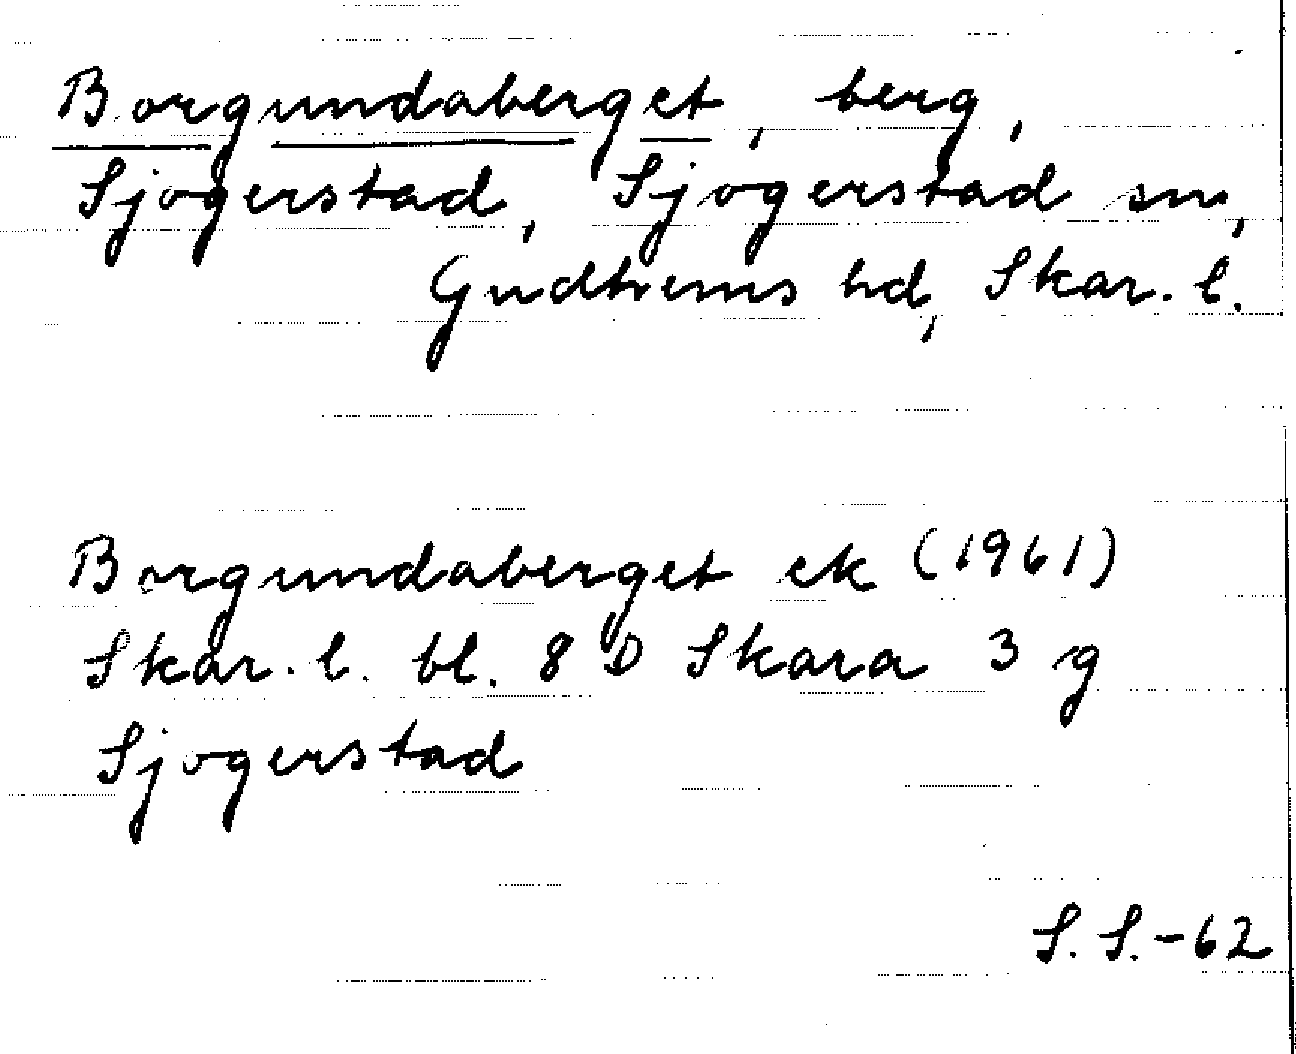 Borgundaberget, berg,
Sjogerstad, Sjogerstad sn,
Gudhems hd, Skar. l.
Borgundaberget ek (1961)
Skar. l. bl. 8 D Skara 3 g
Sjogerstad
S. S. -62